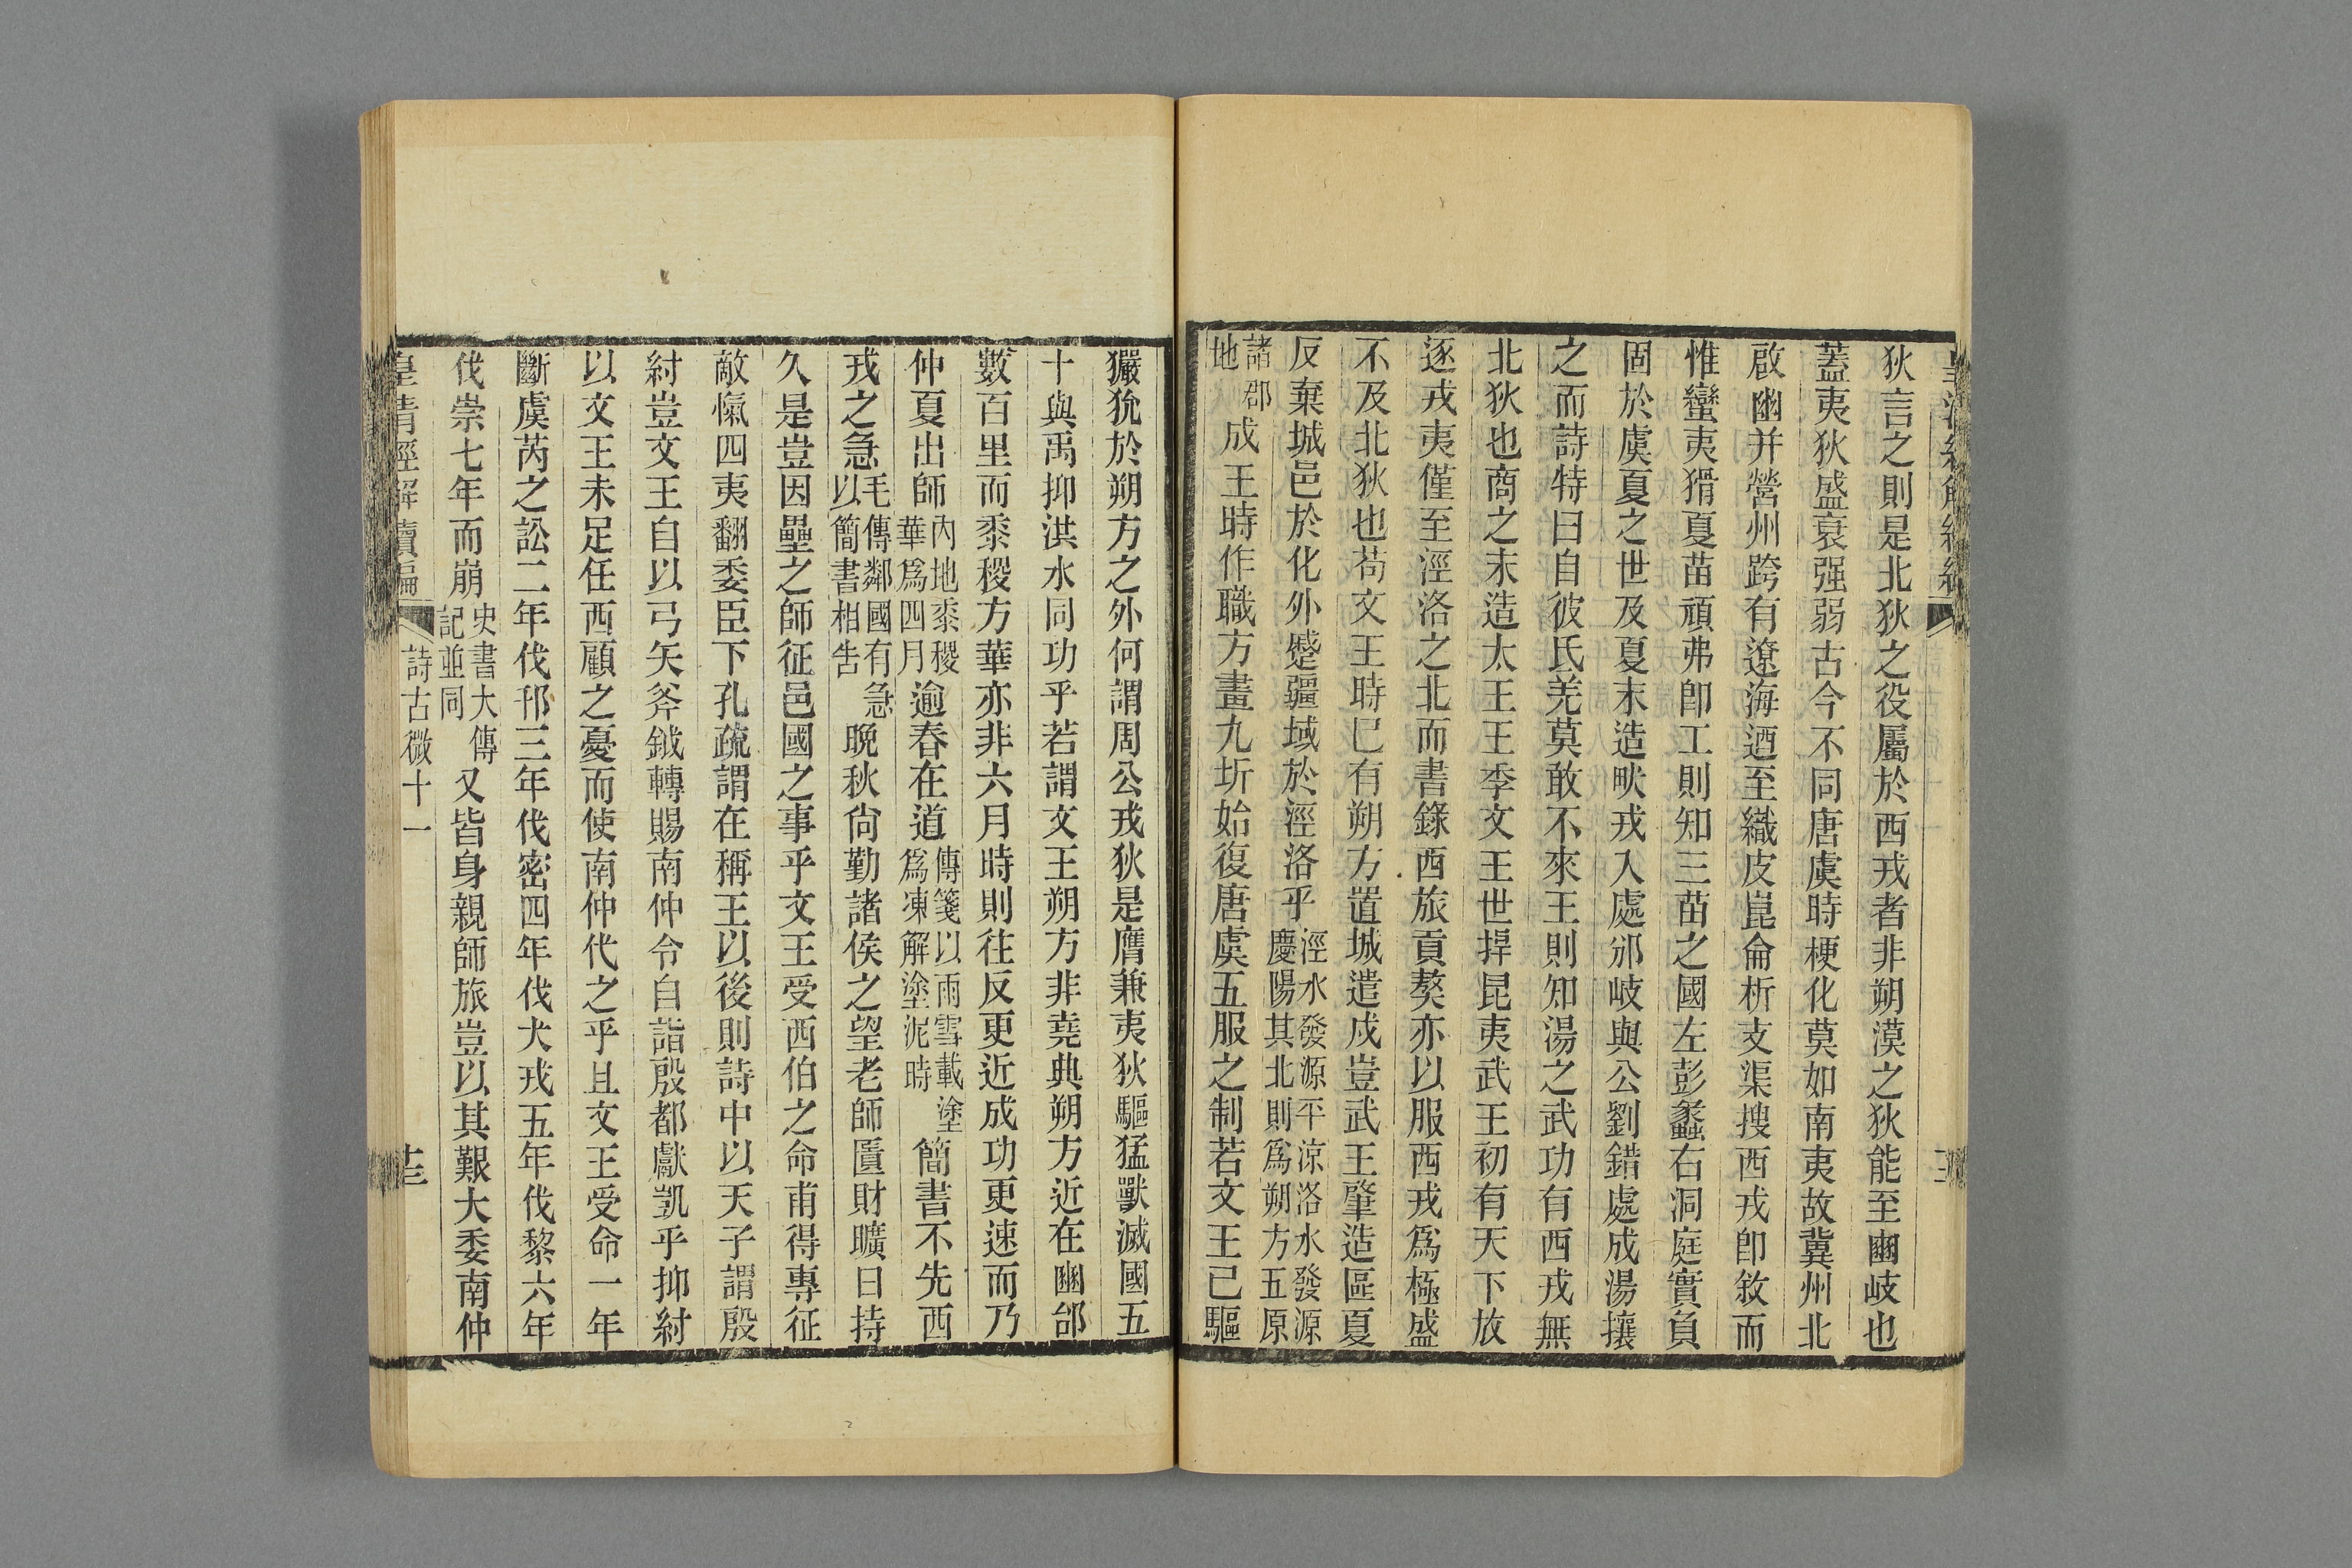 狄言之則是北狄之役屬於西戎者非朔漠之狄能至豳岐也
蓋夷狄盛衰强弱古今不同唐虞時梗化莫如南夷故冀州北
啟幽并營州跨有遼海迺至織皮崑侖析支渠搜西戎卽敘而
惟蠻夷猾夏苗頑弗卽工則知三苗之國左彭蠡右洞庭實負
固於虞夏之世及夏末造畎戎入處邠岐與公劉錯處成湯攘
之而詩特曰自彼氐羌莫敢不來王則知湯之武功有西戎無
北狄也商之末造太王王季文王世捍昆夷武王初有天下放
逐戎夷僅至涇洛之北而書錄西旅貢獒亦以服西戎爲極盛
不及北狄也苟文王時巳有朔方置城遣戍豈武王肇造區夏
反棄城邑於化外蹙疆域於涇洛乎涇水發源平涼洛水發源慶陽其北則爲朔方五原
諸郡地成王時作職方畫九圻始復唐虞五服之制若文王已驅
玁狁於朔方之外何謂周公戎狄是膺兼夷狄驅猛獸滅國五
十與禹抑洪水同功乎若謂文王朔方非堯典朔方近在豳邰
數百里而黍稷方華亦非六月時則往反更近成功更速而乃
仲夏出師內地黍稷華爲四月逾春在道傳箋以雨雪載塗爲凍解塗泥時簡書不先西
戎之急毛傳鄰國有急以簡書相告晚秋尙勤諸侯之望老師匱財曠日持
久是豈因壘之師征邑國之事乎文王受西伯之命甫得專征
敵愾四夷翻委臣下孔疏謂在稱王以後則詩中以天子謂殷
紂豈文王自以弓矢斧鉞轉賜南仲令自詣殷都獻凱乎抑紂
以文王未足任西顧之憂而使南仲代之乎且文王受命一年
斷虞芮之訟二年伐邘三年伐密四年伐犬戎五年伐黎六年
伐崇七年而崩史書大傳記並同又皆身親師旅豈以其艱大委南仲
皇清經解續編 詩古微十一 十三